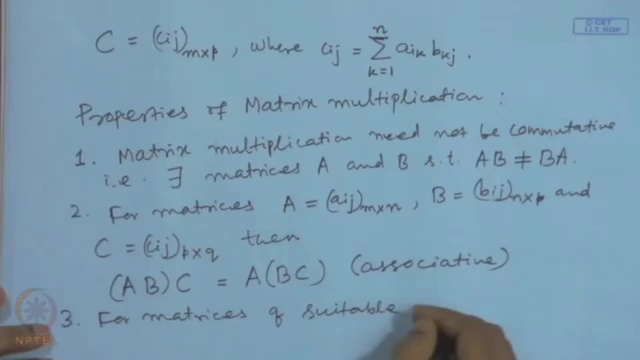 C = (cij)m×p, where cij = n∑k=1 aik bkj.
Properties of Matrix multiplication :
1. Matrix multiplication need not be commutative
i.e. ∃ matrices A and B s.t. AB ≠ BA.
2. For matrices A = (aij)m×n, B = (bij)n×p and
C = (cij)p×q then
(AB)C = A(BC) (associative)
3. For matrices of suitable
© CET
I.I.T. KGP
NPTEL